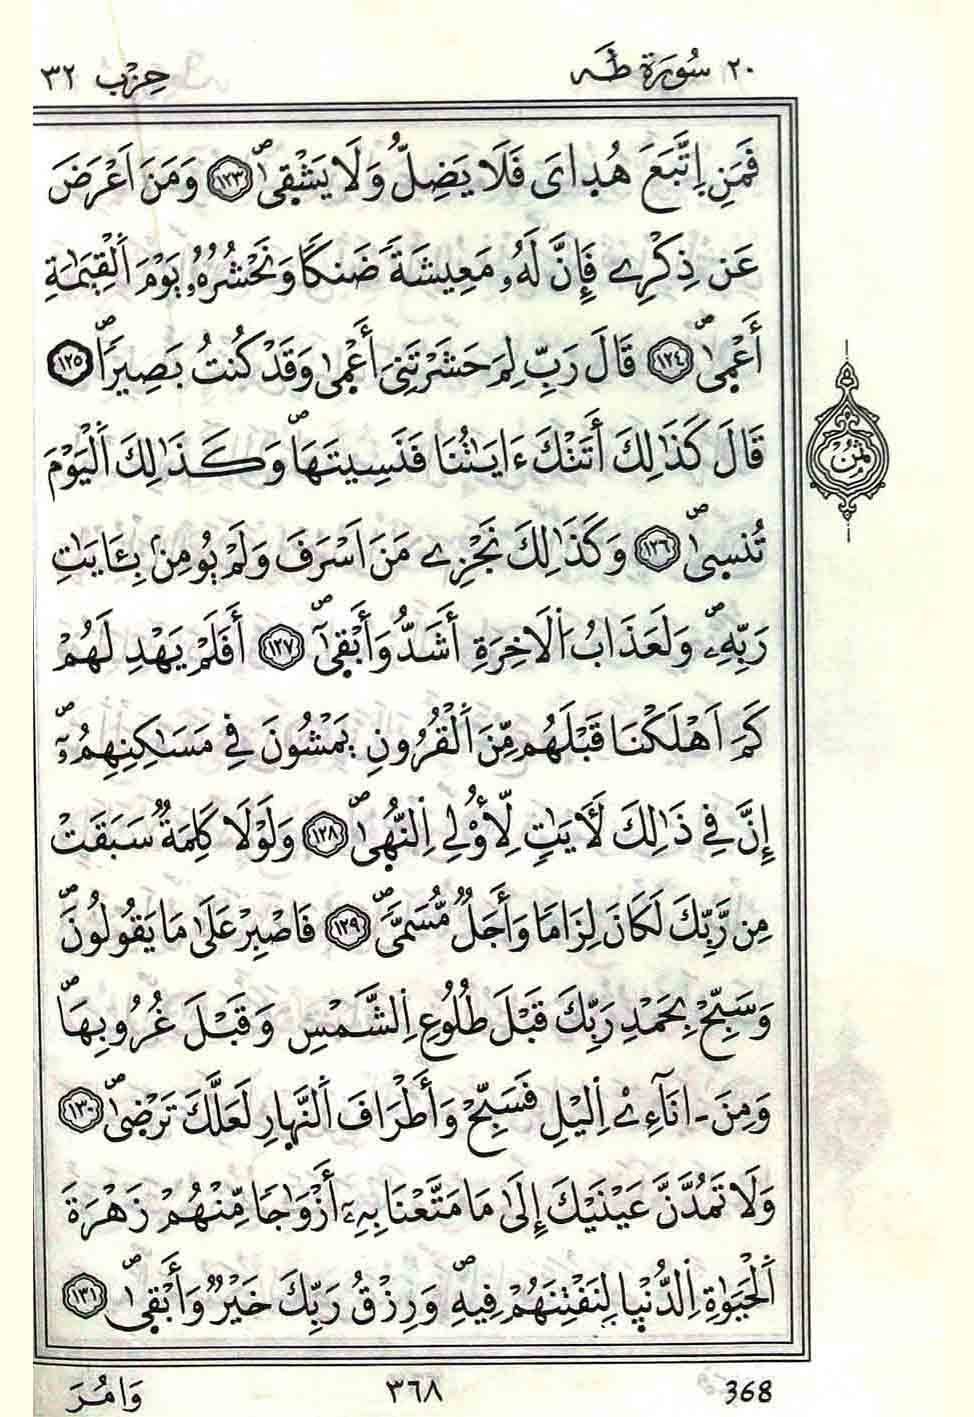 ٢٠ سُورَةُ طَهَ حِزْب ٣٢
فَمَنِ اِتَّبَعَ هُدِايَ فَلَا يَضِلُّ وَلَا يَشْق۪يٰۖ ١٢٣ وَمَنَ اَعْرَضَ
عَن ذِكْرِے فَإِنَّ لَهُۥ مَعِيشَةٗ ضَنكاٗ وَنَحْشُرُهُۥ يَوْمَ اَ۬لْقِيَٰمَةِ
أَعْم۪يٰۖ ١٢٤ قَالَ رَبِّ لِمَ حَشَرْتَنِيَ أَعْم۪يٰ وَقَدْ كُنتُ بَصِيراٗۖ ١٢٥
قَالَ كَذَٰلِكَ أَتَتْكَ ءَايَٰتُنَا فَنَسِيتَهَاۖ وَكَذَٰلِكَ اَ۬لْيَوْمَ
تُنس۪يٰۖ ١٢٦ وَكَذَٰلِكَ نَجْزِے مَنَ اَسْرَفَ وَلَمْ يُومِنۢ بِـَٔايَٰتِ
رَبِّهِۦۖ وَلَعَذَابُ اُ۬لَاخِرَةِ أَشَدُّ وَأَبْق۪يٰٓۖ ١٢٧ أَفَلَمْ يَهْدِ لَهُمْ
كَمَ اَهْلَكْنَا قَبْلَهُم مِّنَ اَ۬لْقُرُونِ يَمْشُونَ فِے مَسَٰكِنِهِمُۥٓۖ
إِنَّ فِے ذَٰلِكَ لَأٓيَٰتٖ لِّأُوْلِے اِ۬لنُّه۪يٰۖ ١٢٨ وَلَوْلَا كَلِمَةٞ سَبَقَتْ
مِن رَّبِّكَ لَكَانَ لِزَاماٗ وَأَجَلٞ مُّسَمّيٗۖ ١٢٩ فَاصْبِرْ عَلَيٰ مَا يَقُولُونَۖ
وَسَبِّحْ بِحَمْدِ رَبِّكَ قَبْلَ طُلُوعِ اِ۬لشَّمْسِ وَقَبْلَ غُرُوبِهَاۖ
وَمِنَ ـ اٰنَآءِےْ اِ۬ليْلِ فَسَبِّحْ وَأَطْرَافَ اَ۬لنَّه۪ارِ لَعَلَّكَ تَرْض۪يٰۖ ١٣٠
وَلَا تَمُدَّنَّ عَيْنَيْكَ إِلَيٰ مَا مَتَّعْنَا بِهِۦٓ أَزْوَٰجاٗ مِّنْهُمْ زَهْرَةَ
اَ۬لْحَيَوٰةِ اِ۬لدُّنْي۪ا لِنَفْتِنَهُمْ فِيهِۖ وَرِزْقُ رَبِّكَ خَيْرٞ وَأَبْق۪يٰۖ ١٣١
ثُمُن
368 ٣٦٨ وَامُرَ